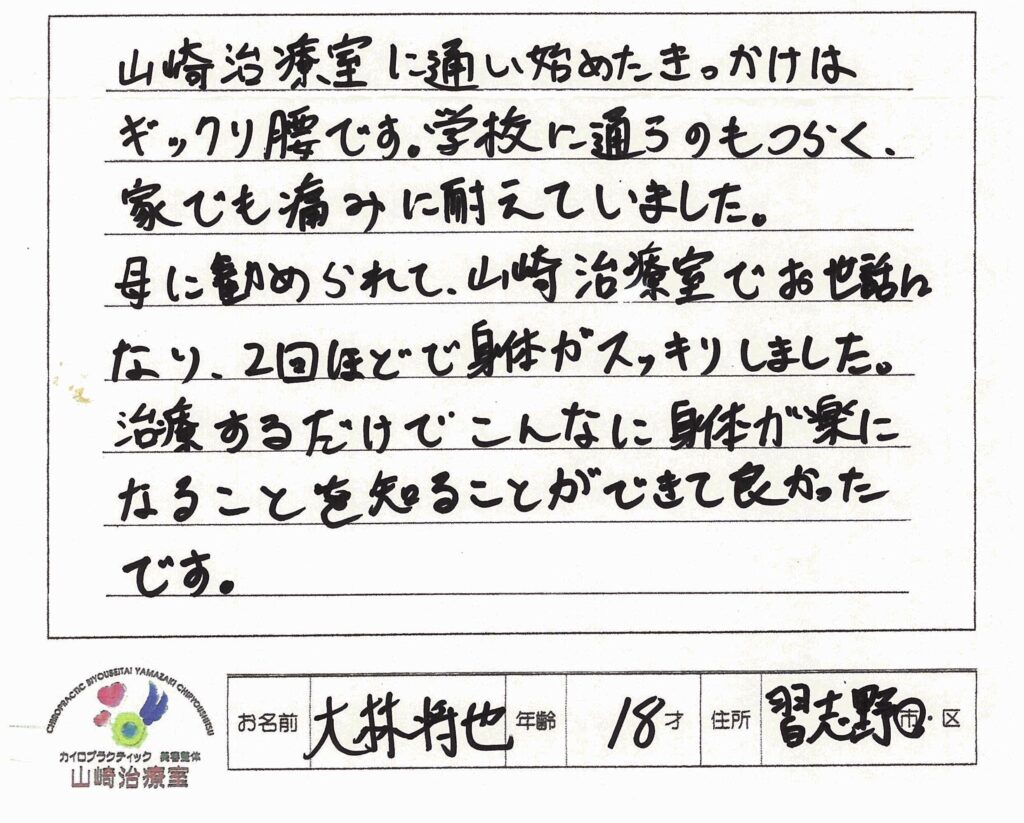 山崎治療室に通い始めたきっかけは
ギックリ腰です。学校に通うのもつらく、
家でも痛みに耐えていました。
母に勧められて、山崎治療室でお世話に
なり、2回ほどで身体がスッキリしました。
治療するだけでこんなに身体が楽に
なることを知ることができて良かった
です。
CHIROPRACTIC BIYOUSEITAI YAMAZAKI CHIRYOUSHITSU
カイロプラクティック 美容整体
山崎治療室
お名前 大林将也 年齢 18才 住所 習志野市・区